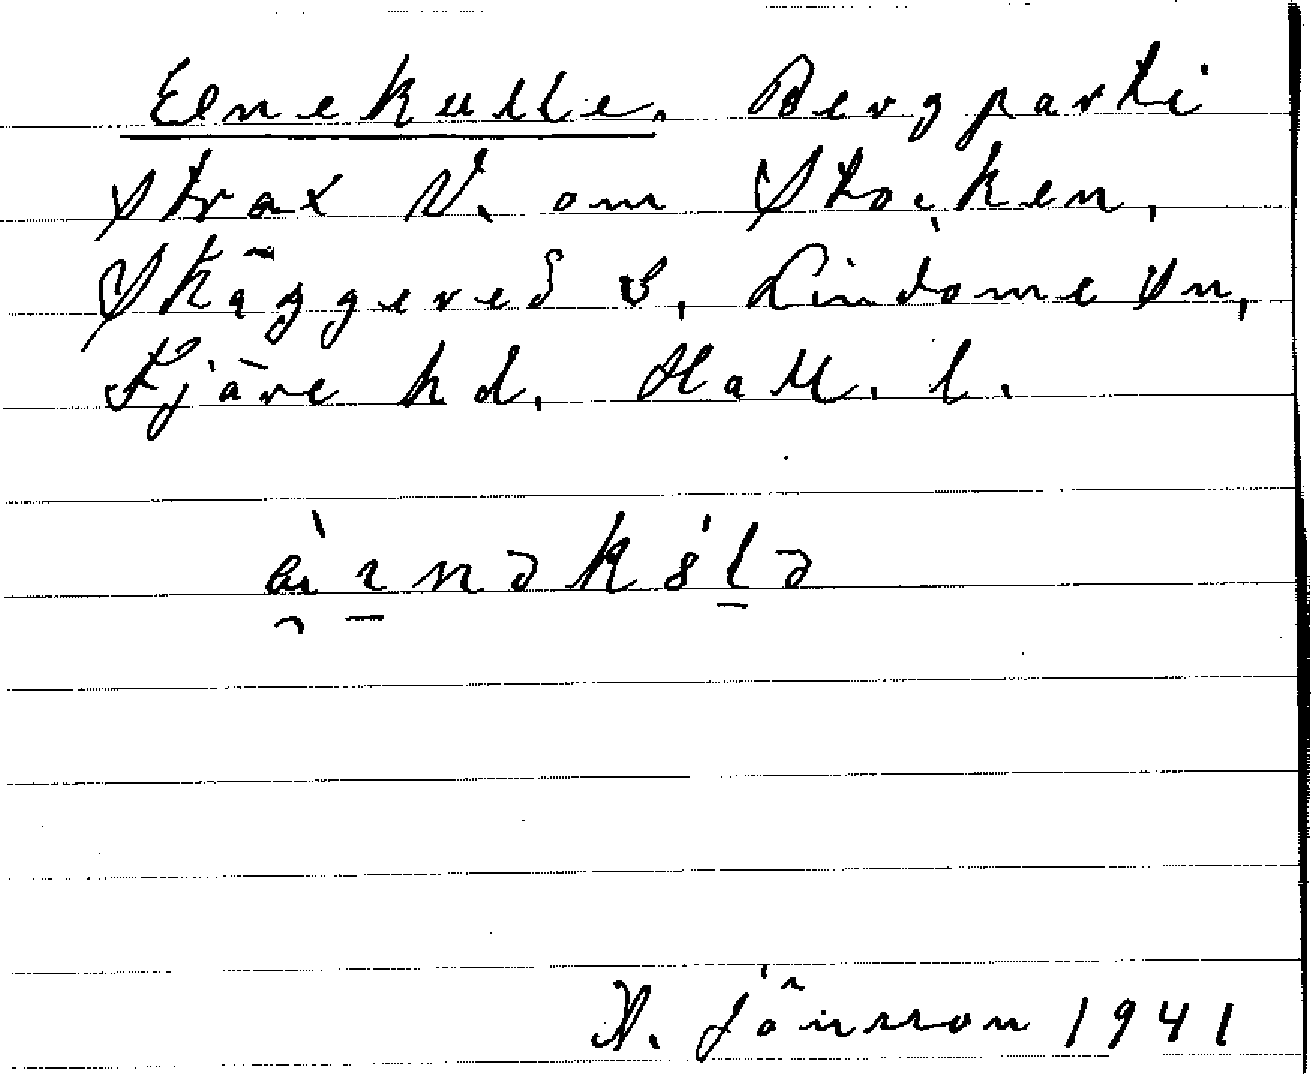 Elnekulle. Bergparti
strax V. om Stocken,
Skäggered s, Lindome sn,
Fjäre hd. Hall. l.
H. Jönsson 1941